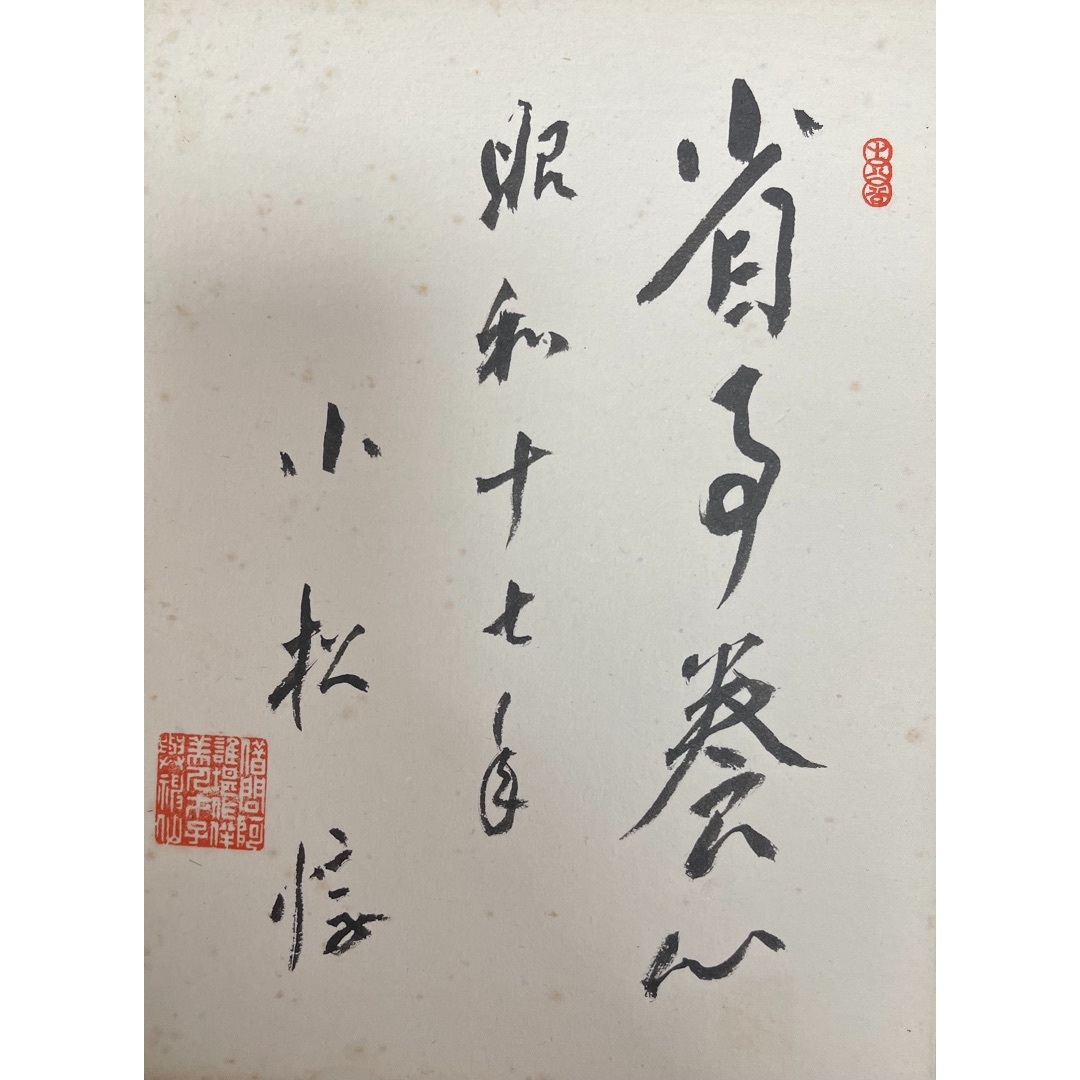 省事養心
昭和十七年
小松惇